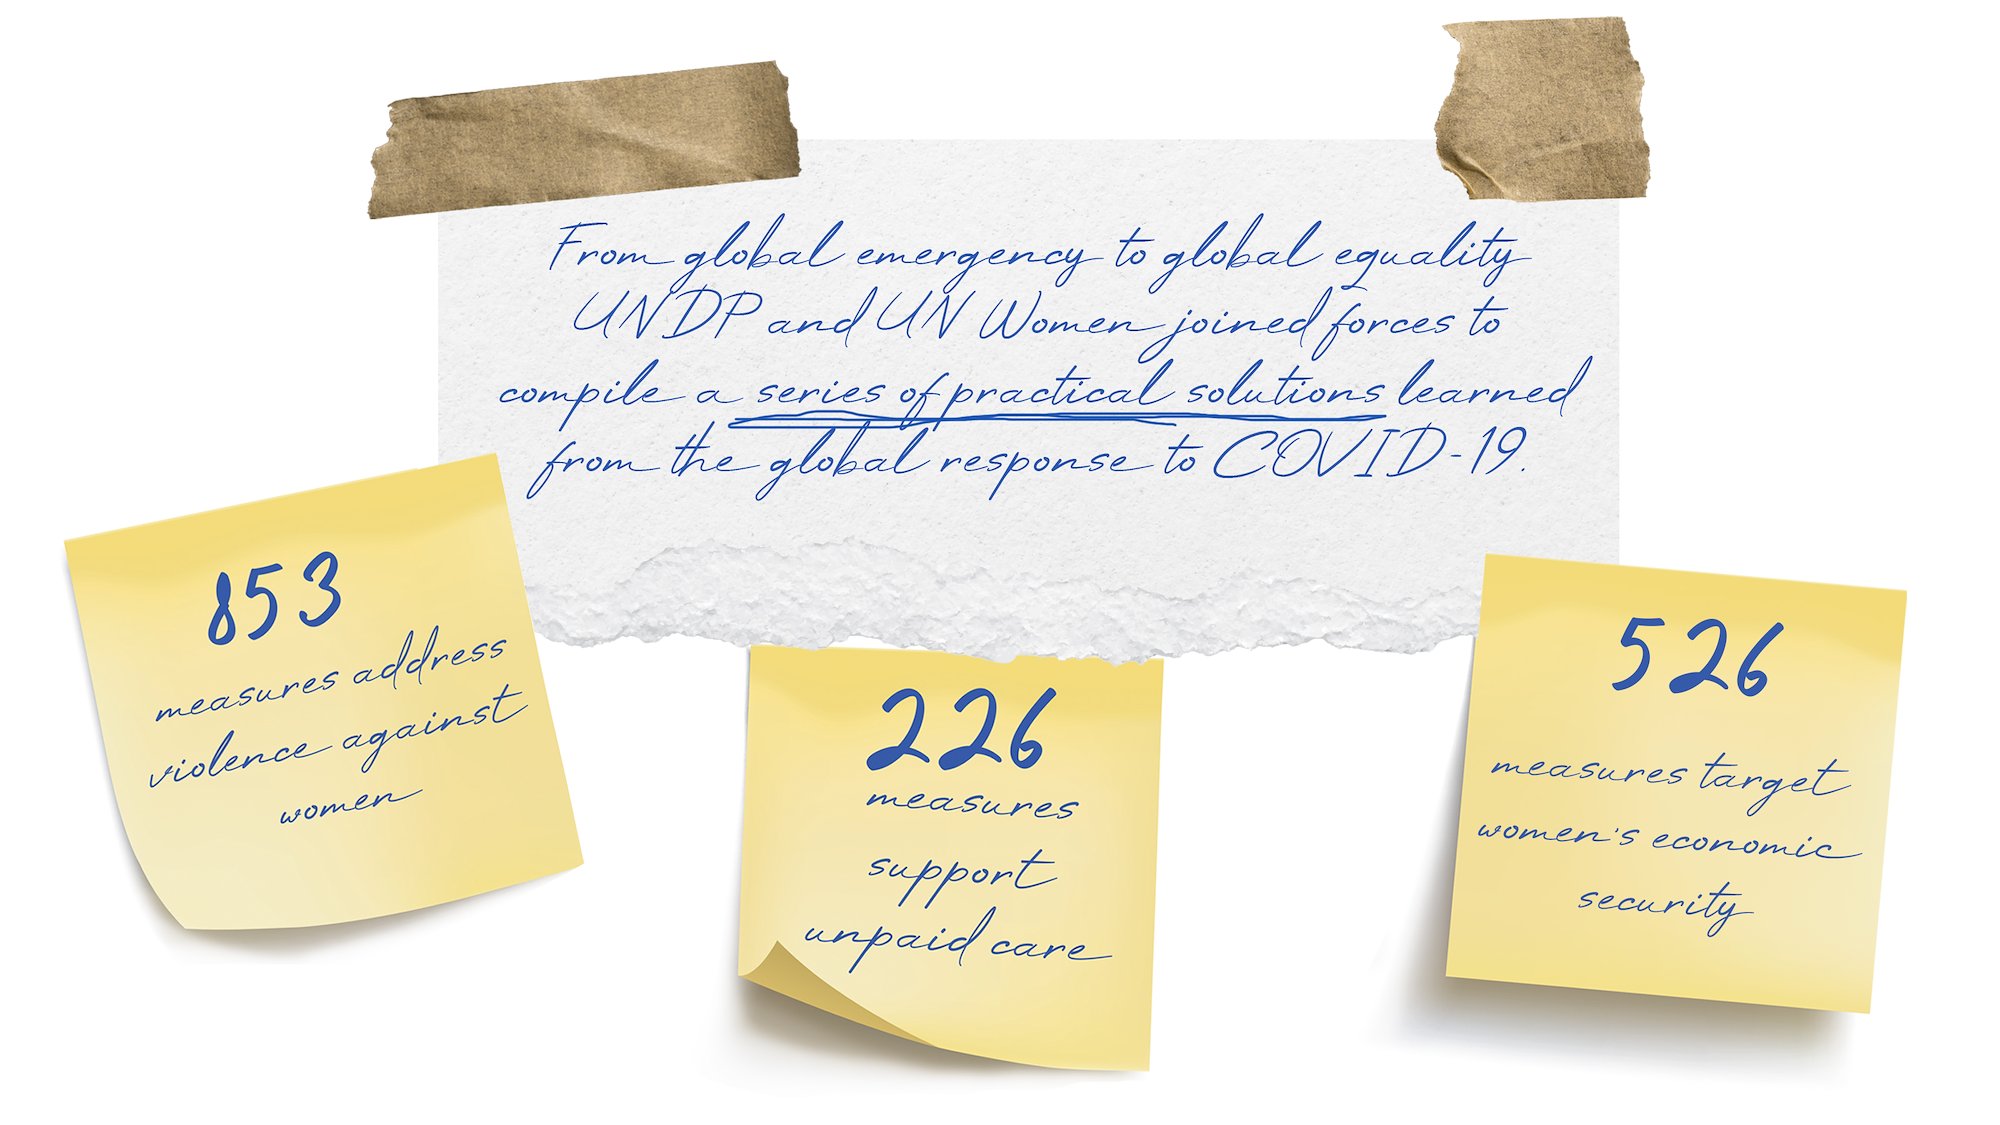 From global emergency to global equality
UNDP and UN Women joined forces to
compile a series of practical solutions learned
from the global response to COVID-19.
853
measures address
violence against
women
226
measures
support
unpaid care
526
measures target
women's economic
security